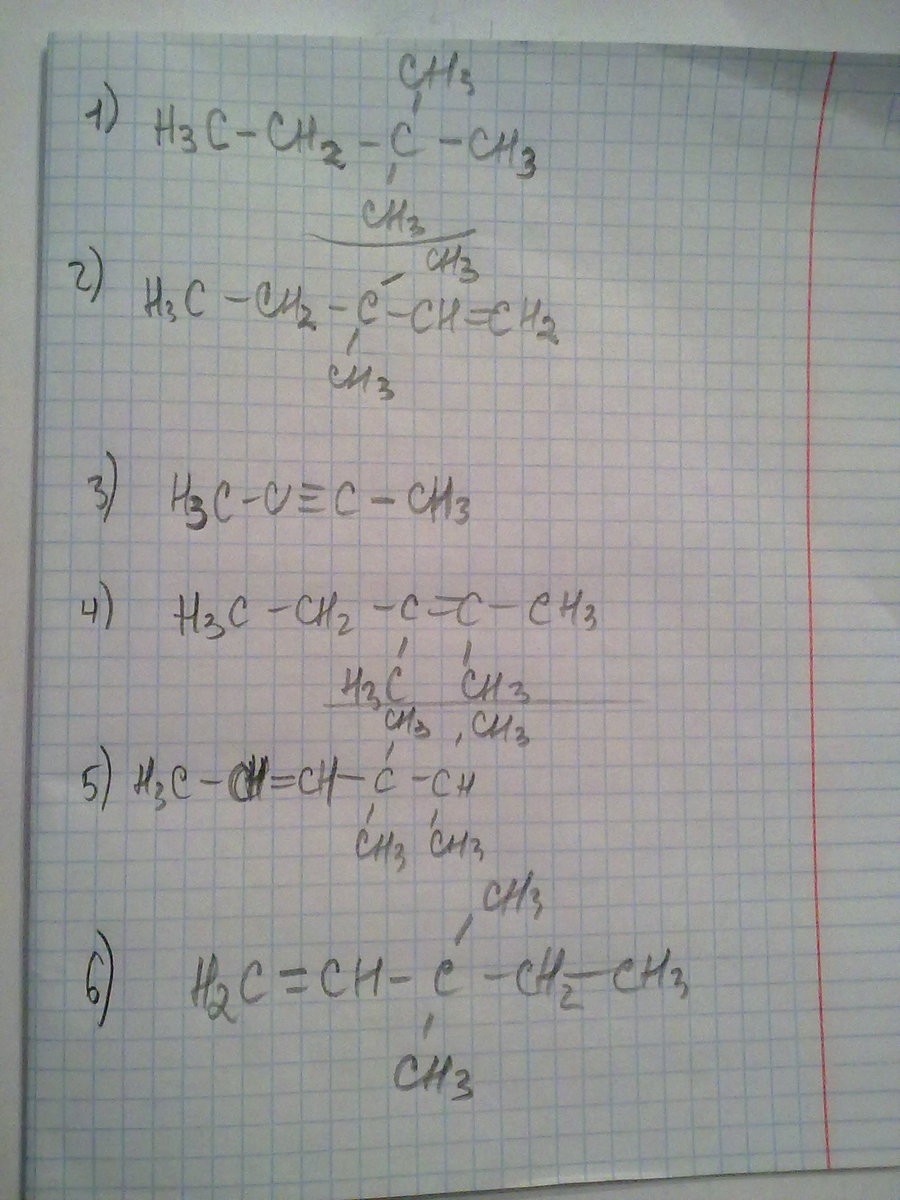 CH3
1) H3C-CH2-C-CH3
CH3
CH3
2) H3C-CH2-C-CH=CH2
CH3
3) H3C-C≡C-CH3
4) H3C-CH2-C=C-CH3
H3C CH3
CH3 CH3
5) H3C-CH=CH-C-CH
CH3 CH3
CH3
6) H2C=CH-C-CH2-CH3
CH3